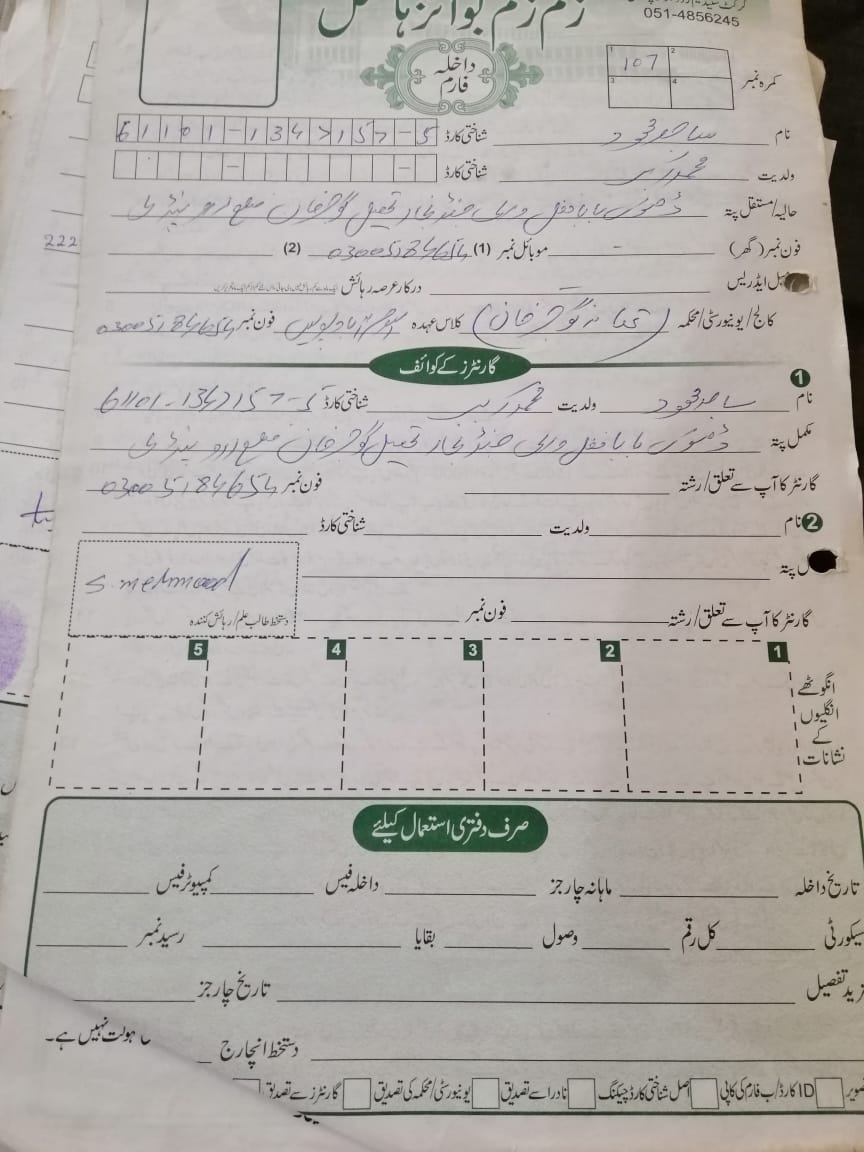 زم زم بوائز ہاسٹل
051-4856245
داخلہ
فارم
کمرہ نمبر 1 107 2 3 4
نام ساجد محمود شناختی کارڈ 61101-1347157-5
ولدیت محمد شناختی کارڈ
حالیہ/مستقل پتہ ڈھوک بابا فضل تحصیل گوجرخان ضلع راولپنڈی
فون نمبر (گھر) - موبائل نمبر (1) 03005184654 (2)
222
ایڈریس - درکار عرصہ رہائش
کالج/یونیورسٹی/محکمہ (تھانہ گوجرخان) کلاس عہدہ اسلام آباد پولیس فون نمبر 03005184654
گارنٹرز کے کوائف
1
نام ساجد محمود ولدیت محمد شناختی کارڈ 61101-1347157-5
مکمل پتہ ڈھوک بابا فضل تحصیل گوجرخان ضلع راولپنڈی
گارنٹر کا آپ سے تعلق/رشتہ فون نمبر 03005184654
2 نام ولدیت شناختی کارڈ
پتہ
گارنٹر کا آپ سے تعلق/رشتہ فون نمبر
S. mehmood
دستخط طالب علم/رہائش کنندہ
1 2 3 4 5
انگوٹھے
انگلیوں
کے
نشانات
صرف دفتری استعمال کیلئے
تاریخ داخلہ ماہانہ چارجز داخلہ فیس کمپیوٹر فیس
سیکورٹی کل رقم وصول بقایا رسید نمبر
مزید تفصیل تاریخ چارجز
دستخط انچارج ہولت نہیں ہے۔
تصویر ID کارڈ/ب فارم کی کاپی اصل شناختی کارڈ چیکنگ نادرا سے تصدیق یونیورسٹی/محکمہ کی تصدیق گارنٹرز سے تصدیق